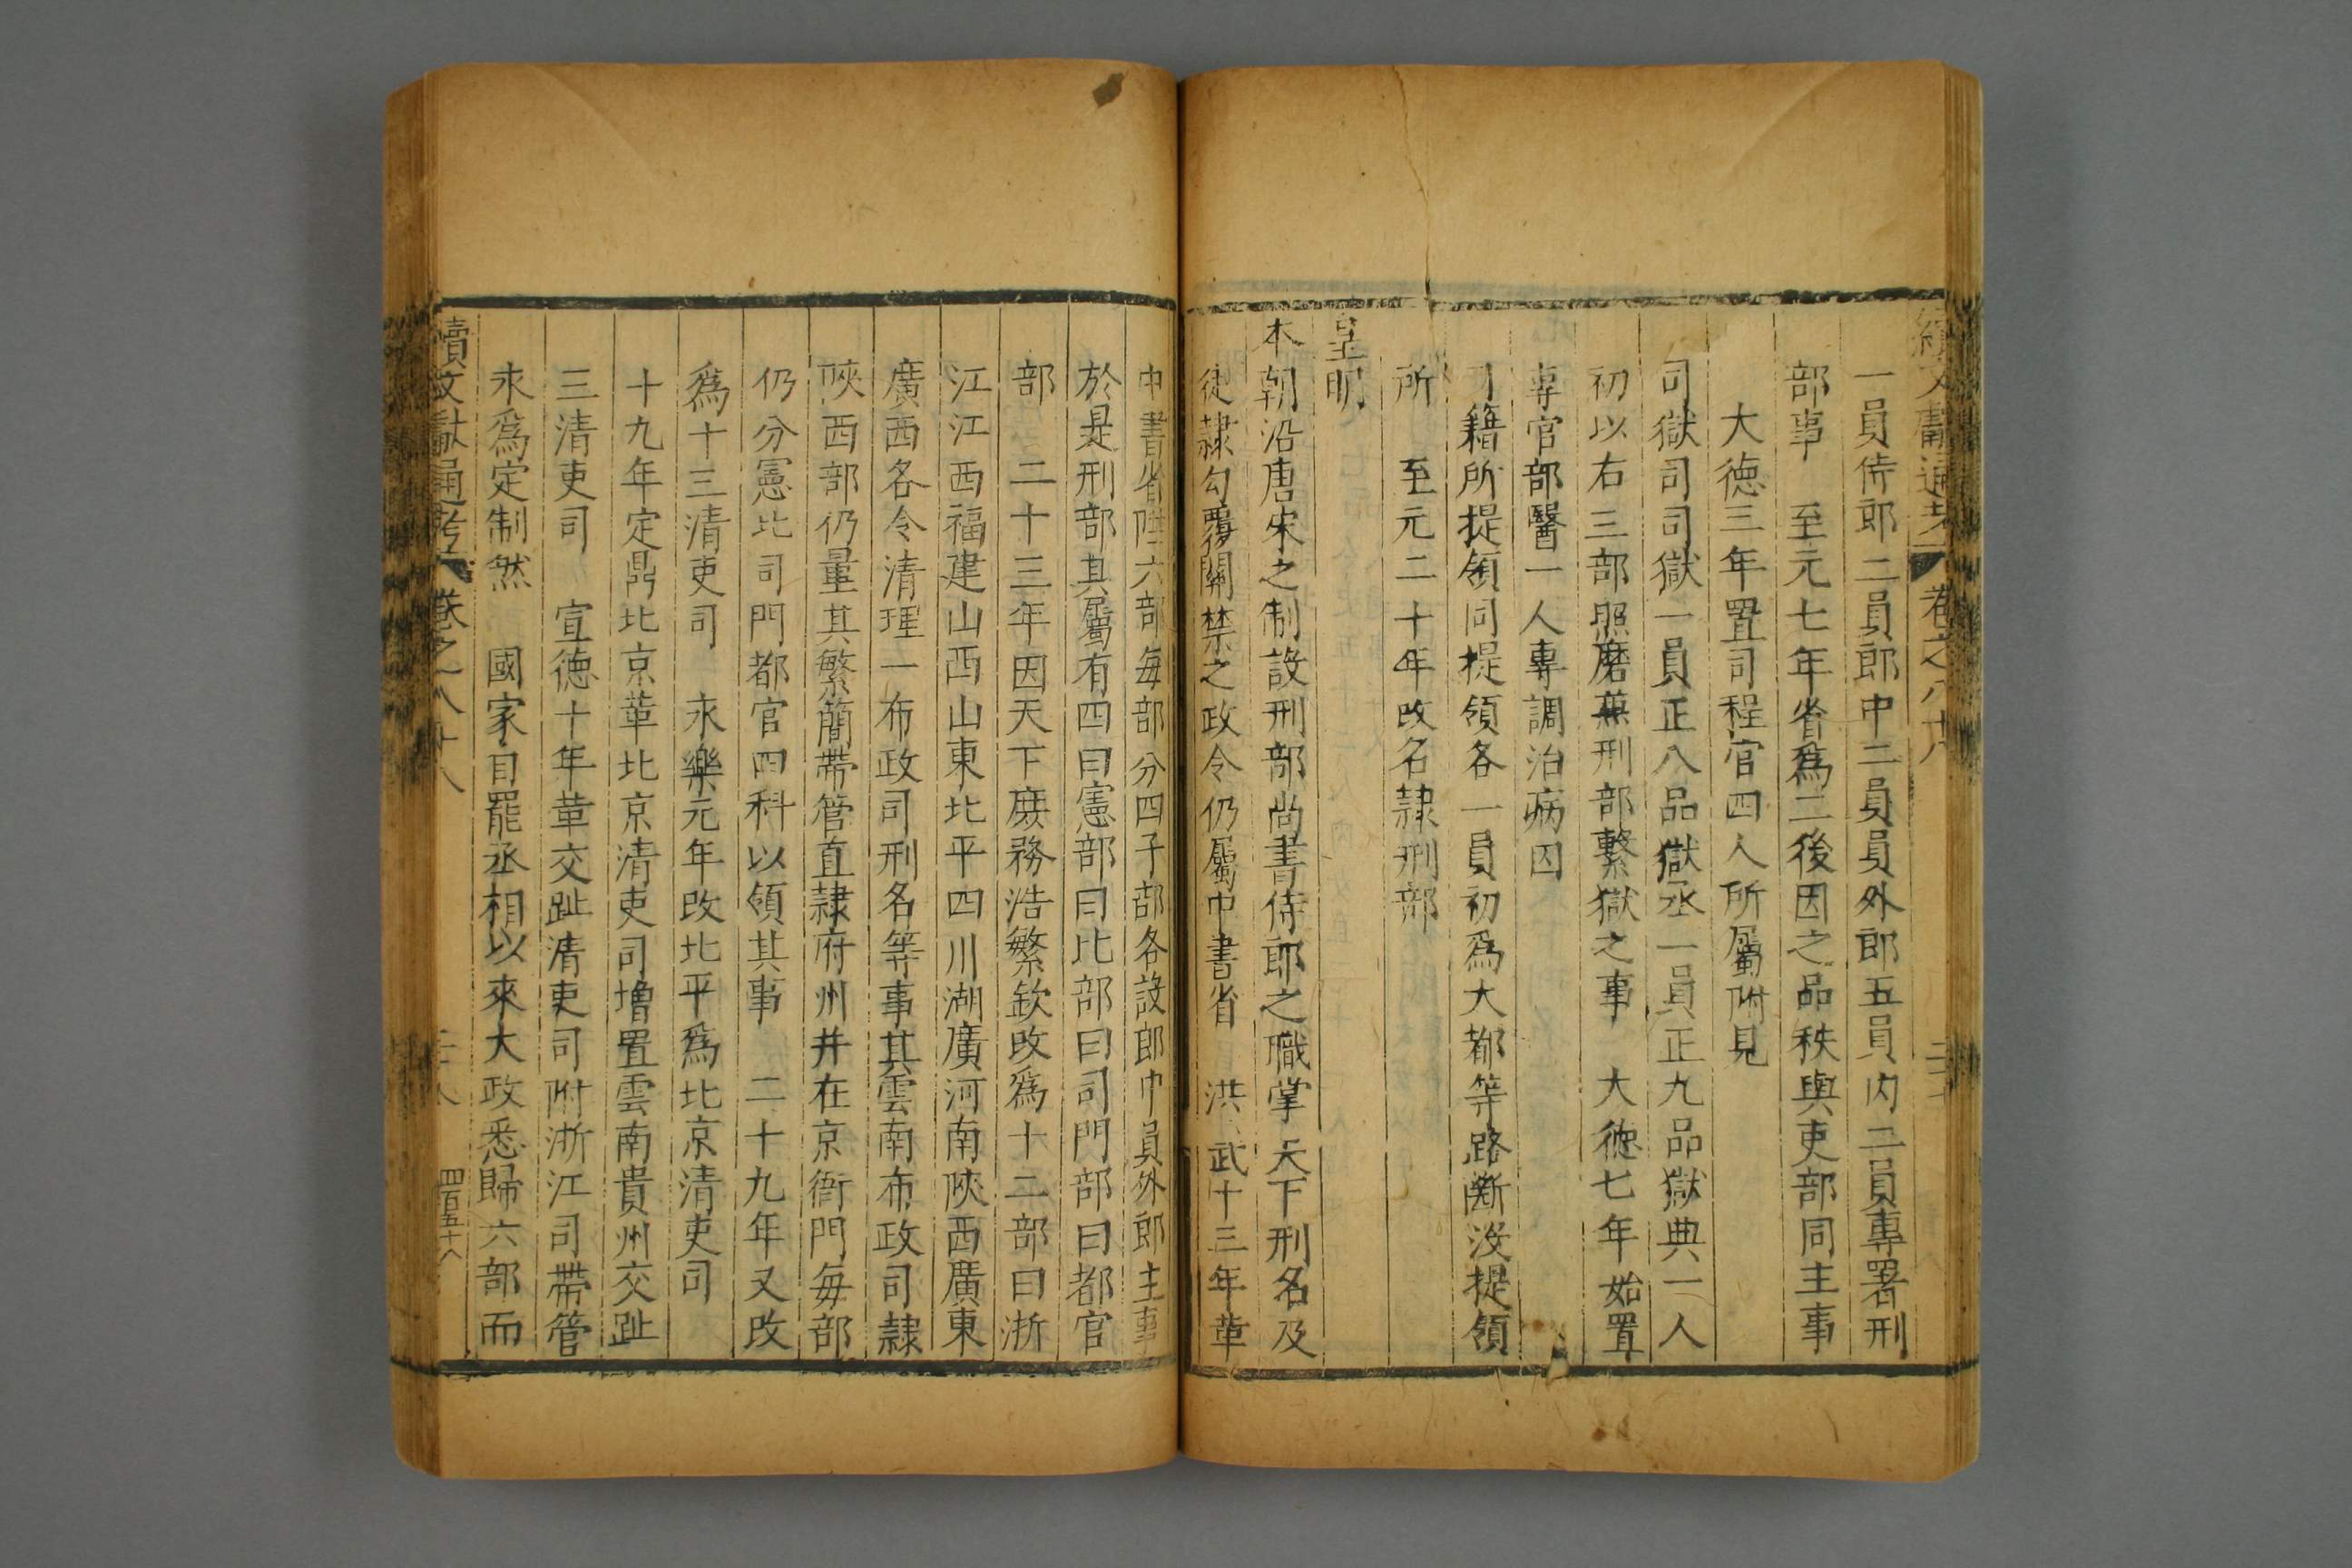 續文獻通考 卷之八十八
一員侍郎二員郎中二員員外郎五員內二員專署刑
部事 至元七年省爲二後因之品秩與吏部同主事
大德三年置司程官四人所屬附見
司獄司司獄一員正八品獄丞一員正九品獄典一人
初以右三部照磨蒹刑部繫獄之事 大德七年始置
專官部醫一人專調治病囚
司籍所提領同提領各一員初爲大都等路斷沒提領
所 至元二十年改名隸刑部
皇明
本朝沿唐宋之制設刑部尚書侍郎之職掌天下刑名及
徒隸勾覆關禁之政令仍屬中書省 洪武十三年革
中書省陞六部每部分四子部各設郎中員外郎主事
於是刑部其屬有四曰憲部曰比部曰司門部曰都官
部 二十三年因天下庶務浩繁欽改爲十二部曰浙
江江西福建山西山東北平四川湖廣河南陝西廣東
廣西各令清理一布政司刑名等事其雲南布政司隸
陝西部仍量其繁簡帶管直隸府州并在京衙門每部
仍分憲比司門都官四科以領其事 二十九年又改
爲十三清吏司 永樂元年改北平爲北京清吏司
十九年定鼎北京革北京清吏司增置雲南貴州交趾
三清吏司 宣德十年革交趾清吏司附浙江司帶管
永爲定制然 國家自罷丞相以來大政悉歸六部而
續文獻通考 卷之八十八 二十八 四百五十八